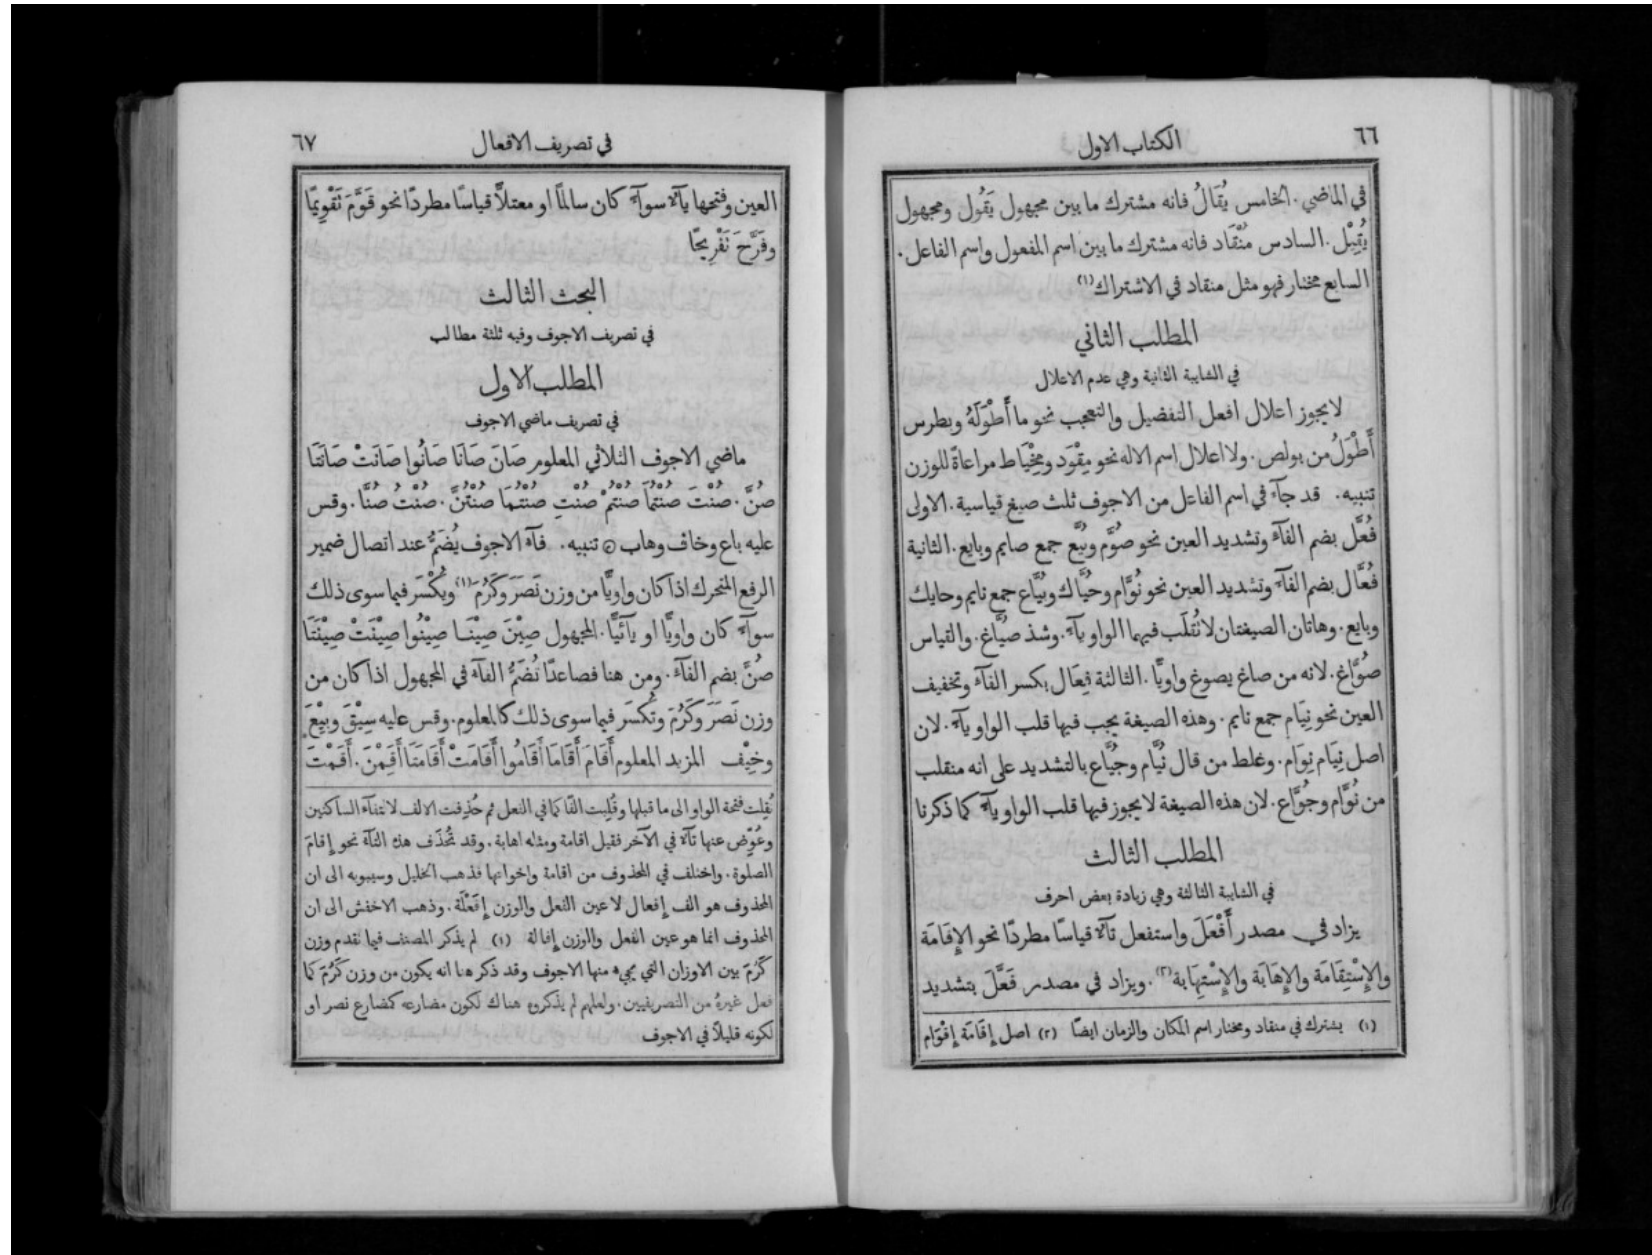 ٦٦
الكتاب الاول
في الماضي. الخامس يُقَالُ فانه مشترك ما بين مجهول يَقُول ومجهول
يُقِيْل. السادس مُنْقَاد فانه مشترك ما بين اسم المفعول واسم الفاعل.
السابع مختار فهو مثل منقاد في الاشتراك(١)
المطلب الثاني
في الشايبة الثانية وهي عدم الاعلال
لا يجوز اعلال افعل التفضيل والتعجب نحو ما أَطْوَلَهُ وبطرس
أَطْوَلُ من بولص. ولا اعلال اسم الاله نحو مِقْوَد ومِخْيَاط مراعاةً للوزن
تنبيه. قد جآءَ في اسم الفاعل من الاجوف ثلث صيغ قياسية. الاولى
فُعَّل بضم الفآءِ وتشديد العين نحو صُوَّم وبُيَّع جمع صايم وبايع. الثانية
فُعَّال بضم الفآءِ وتشديد العين نحو نُوَّام وحُيَّاك وبُيَّاع جمع نايم وحايك
وبايع. وهاتان الصيغتان لا تُقلَب فيهما الواو يآءً. وشذ صُيَّاغ. والقياس
صُوَّاغ. لانه من صاغ يصوغ واويًّا. الثالثة فِعَال بكسر الفآءِ وتخفيف
العين نحو نِيَام جمع نايم. وهذه الصيغة يجب فيها قلب الواو يآءً. لان
اصل نِيَام نِوَام. وغلط من قال نُيَّام وجُيَّاع بالتشديد على انه منقلب
من نُوَّام وجُوَّاع. لان هذه الصيغة لا يجوز فيها قلب الواو يآءً كما ذكرنا
المطلب الثالث
في الشايبة الثالثة وهي زيادة بعض احرف
يزاد في مصدر أَفْعَلَ واستفعل تآءٌ قياسًا مطردًا نحو الإِقَامَة
والإِسْتِقَامَة والإِهَابَة والإِسْتِهَابة(٢). ويزاد في مصدر فَعَّلَ بتشديد
(١) يشترك في منقاد ومختار اسم المكان والزمان ايضًا (٢) اصل إِقَامَة إِقْوَام
في تصريف الافعال
٦٧
العين وفتحها يآءٌ سوآءٌ كان سالمًا او معتلًّا قياسًا مطردًا نحو قَوَّمَ تَقْوِيمًا
وفَرَّحَ تَفْرِيحًا
البحث الثالث
في تصريف الاجوف وفيه ثلثة مطالب
المطلب الاول
في تصريف ماضي الاجوف
ماضي الاجوف الثلاثي المعلوم صَانَ صَانَا صَانُوا صَانَتْ صَانَتَا
صُنَّ. صُنْتَ صُنْتُمَا صُنْتُمْ صُنْتِ صُنْتُمَا صُنْتُنَّ. صُنْتُ صُنَّا. وقس
عليه باع وخاف وهاب تنبيه. فآءُ الاجوف يُضَمُّ عند اتصال ضمير
الرفع المتحرك اذا كان واويًّا من وزن نَصَرَ وكَرُمَ(١) ويُكْسَر فيما سوى ذلك
سوآءٌ كان واويًّا او يآئيًّا. المجهول صِيْنَ صِيْنَا صِيْنُوا صِيْنَتْ صِيْنَتَا
صُنَّ بضم الفآءِ. ومن هنا فصاعدًا تُضَمُّ الفآءُ في المجهول اذا كان من
وزن نَصَرَ وكَرُمَ وتُكسَر فيما سوى ذلك كالمعلوم. وقس عليه سِيْقَ وبِيْعَ
وخِيْف المزيد المعلوم أَقَامَ أَقَامَا أَقَامُوا أَقَامَتْ أَقَامَتَا أَقَمْنَ. أَقَمْتَ
نُقِلت فتحة الواو الى ما قبلها وقُلِبت الفًا كما في الفعل ثم حُذِفت الالف لالتقآء الساكنين
وعُوِّض عنها تآءٌ في الآخر فقيل اقامة ومثله اهابة. وقد تُحذَف هذه التآءُ نحو إِقامَ
الصلوة. واختلف في المحذوف من اقامة واخواتها فذهب الخليل وسيبويه الى ان
المحذوف هو الف إِفعال لا عين الفعل والوزن إِفَعْلَة. وذهب الاخفش الى ان
المحذوف انما هو عين الفعل والوزن إِفالة (١) لم يذكر المصنف فيما تقدم وزن
كَرُمَ بين الاوزان التي يجيء منها الاجوف وقد ذكر هنا انه يكون من وزن كَرُمَ كما
فعل غيرهُ من التصريفيين. ولعلهم لم يذكروه هناك لكون مضارعه كمضارع نصر او
لكونه قليلاً في الاجوف